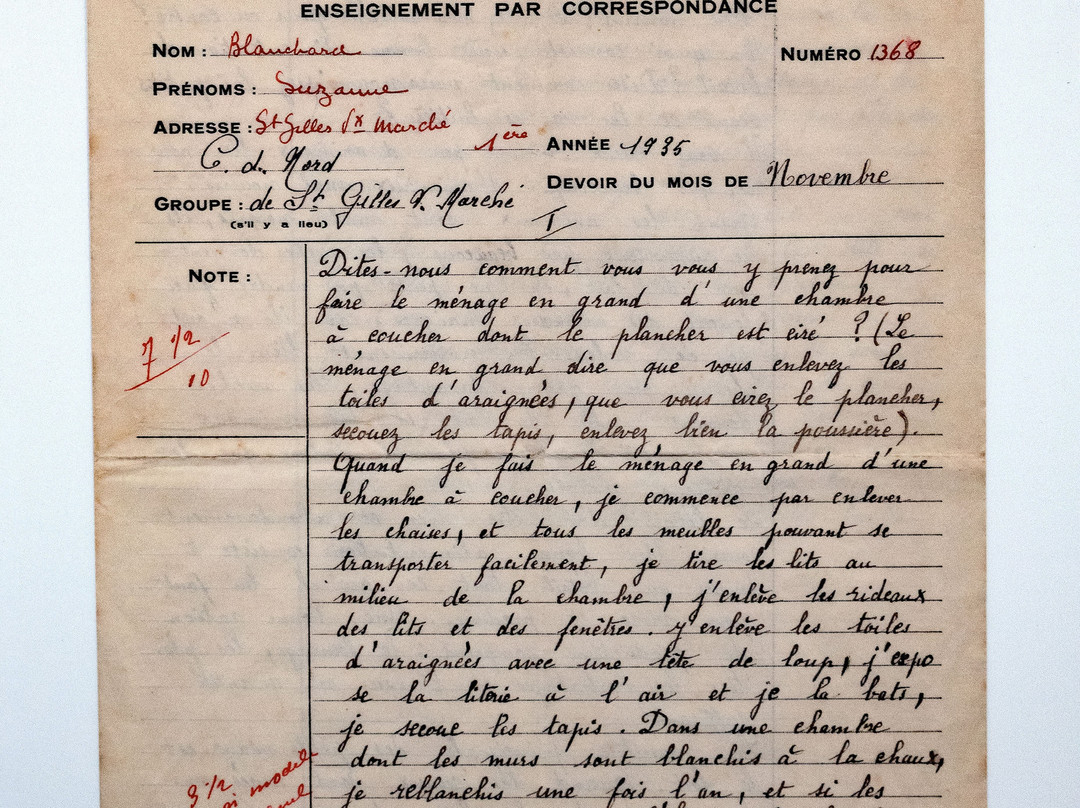 ENSEIGNEMENT PAR CORRESPONDANCE
NOM : Blanchard
NUMÉRO 1368
PRÉNOMS : Suzanne
ADRESSE : St Gilles Vx Marché
1ère ANNÉE 1935
C. d. Nord
DEVOIR DU MOIS DE Novembre
GROUPE : de St Gilles V. Marché
(s'il y a lieu)
I
NOTE :
7 1/2
10
Dites-nous comment vous vous y prenez pour
faire le ménage en grand d'une chambre
à coucher dont le plancher est ciré ? (Le
ménage en grand dire que vous enlevez les
toiles d'araignées, que vous cirez le plancher,
secouez les tapis, enlevez bien la poussière).
Quand je fais le ménage en grand d'une
chambre à coucher, je commence par enlever
les chaises, et tous les meubles pouvant se
transporter facilement, je tire les lits au
milieu de la chambre, j'enlève les rideaux
des lits et des fenêtres. J'enlève les toiles
d'araignées avec une tête de loup, j'expo
se la literie à l'air et je la bats,
je secoue les tapis. Dans une chambre
dont les murs sont blanchis à la chaux,
je reblanchis une fois l'an, et si les
3 1/2
modèle